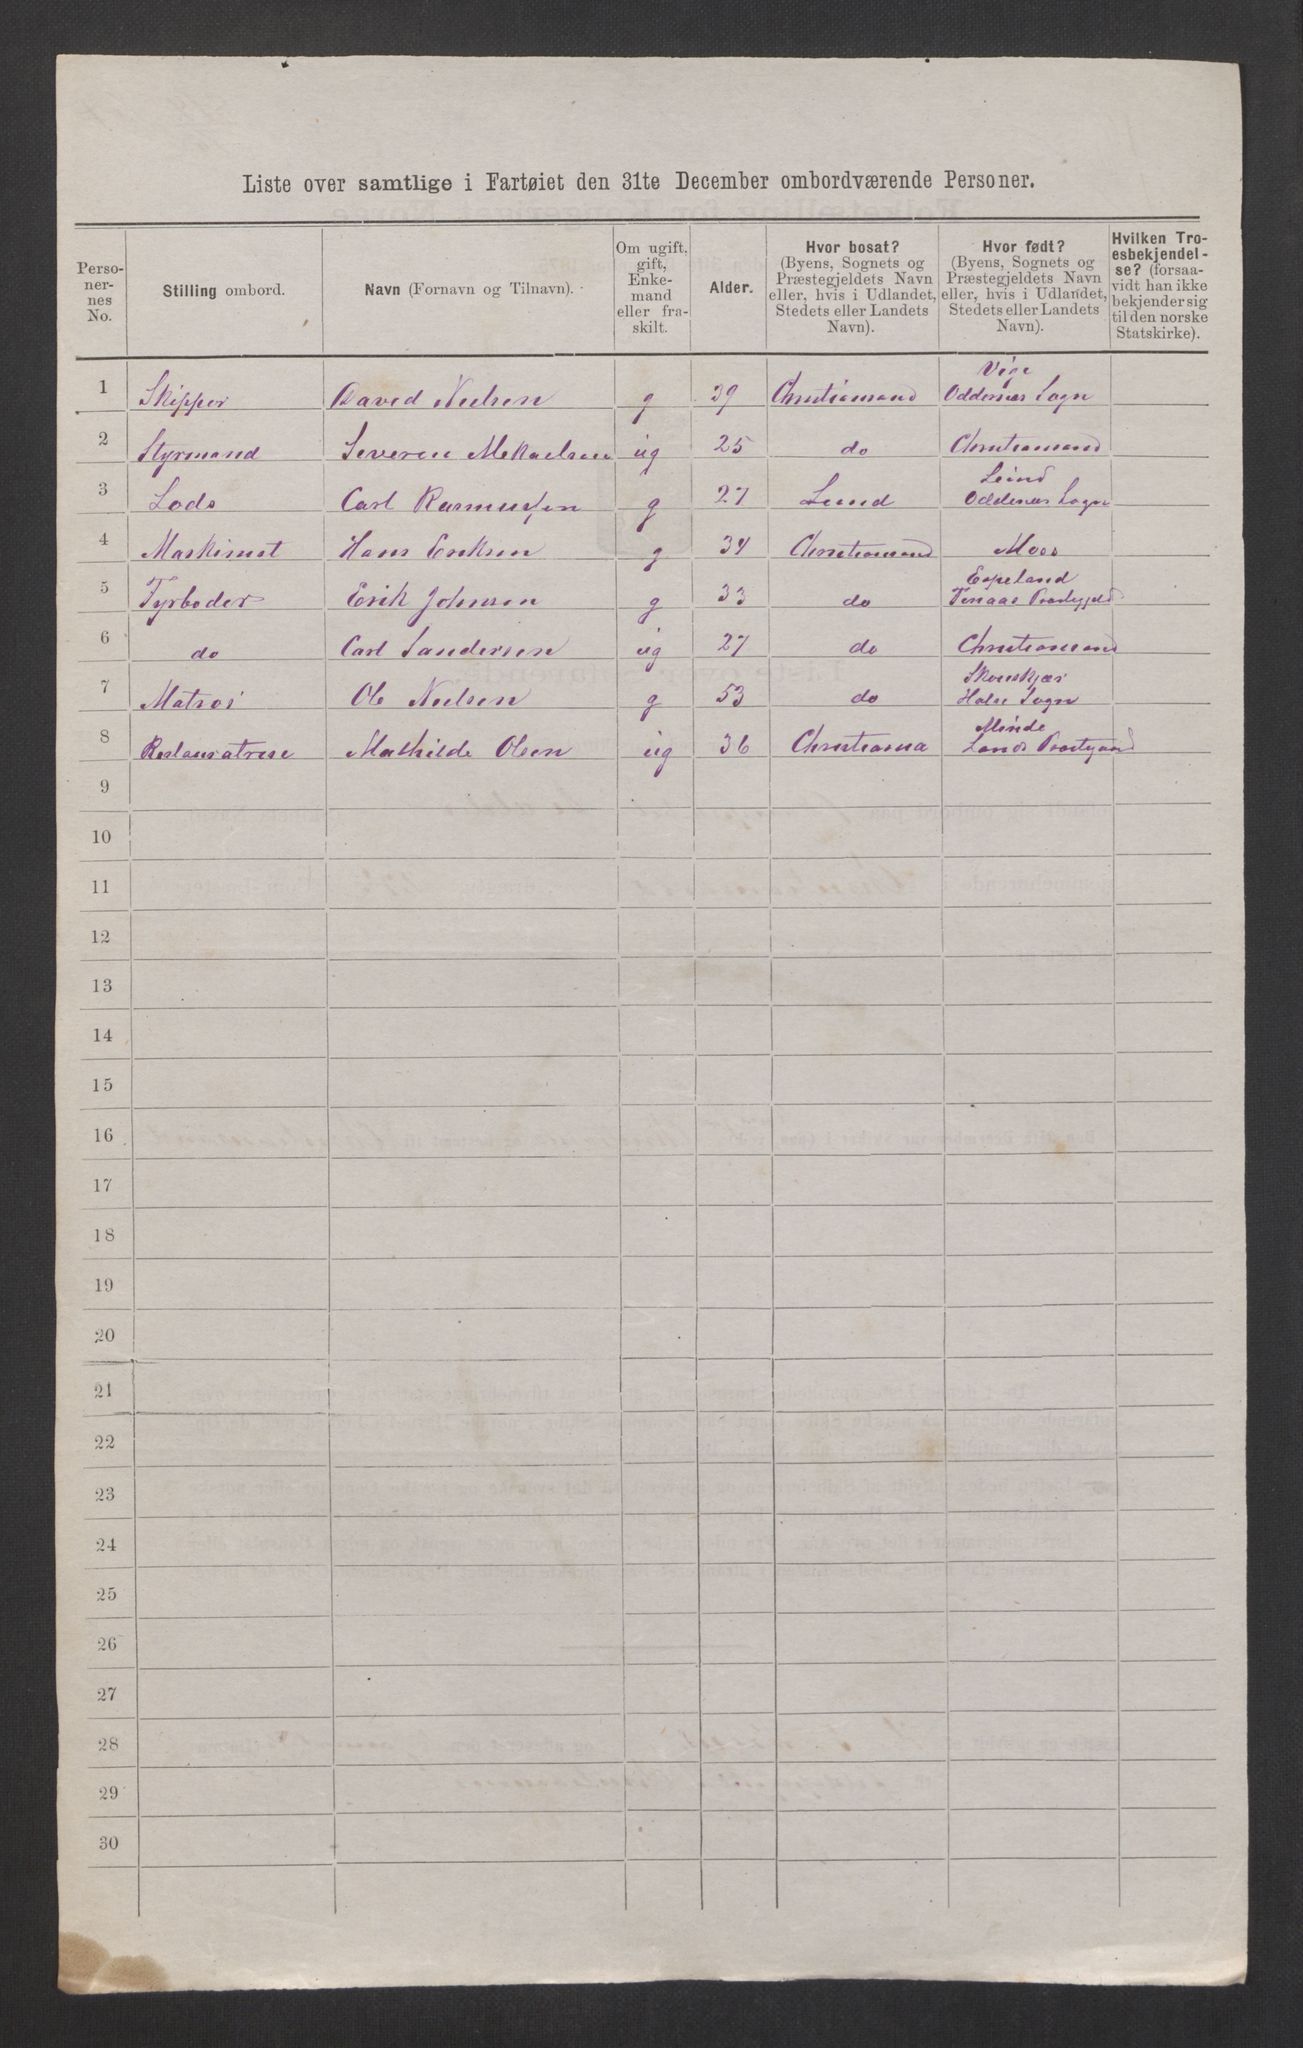 Liste over samtlige i Fartøiet den 31te December ombordværende Personer.
Perso-
ner-
nes
No.
Stilling ombord.
Navn (Fornavn og Tilnavn).
Om ugift,
gift,
Enke-
mand
eller fra-
skilt.
Alder.
Hvor bosat?
(Byens, Sognets og
Præstegjeldets Navn
eller, hvis i Udlandet,
Stedets eller Landets
Navn).
Hvor født?
(Byens, Sognets og
Præstegjeldets Navn
eller, hvis i Udlandet,
Stedets eller Landets
Navn).
Hvilken Tro-
esbekjendel-
se? (forsaa-
vidt han ikke
bekjender sig
til den norske
Statskirke).
1 Skipper David Nielsen g 39 Christiansand Vige
Oddernæs Sogn
2 Styrmand Severin Mekaelsen ug 25 do Christiansand
3 Lods Carl Rasmussen g 27 Lund Lund
Oddernæs Sogn
4 Maskinist Hans Eriksen g 34 Christiansand Moss
5 Fyrboder Erik Johnsen g 33 do Espeland
6 do Carl Sandersen ug 27 do Christiansand
7 Matros Ole Nielsen g 53 do
Halse Sogn
8 Restauratrise Mathilde Olsen ug 36 Christiania Minde
Lands
9
10
11
12
13
14
15
16
17
18
19
20
21
22
23
24
25
26
27
28
29
30